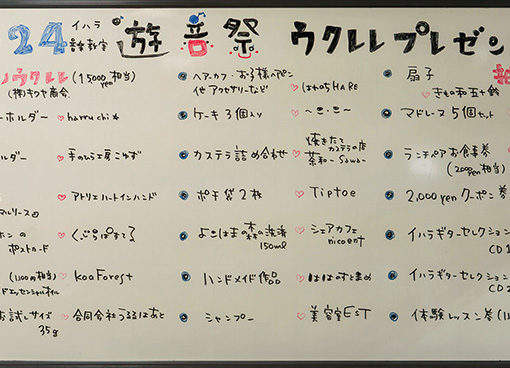 24 イハラ音楽教室 遊音祭 ウクレレプレゼン
ウクレレ (15000yen相当)
(株)キワヤ商会
ーホルダー haruchi
ルダー 手のひら工房こゆず
アトリエハートインハンド
マルリース
ホンの くじらはすてる
ポストカード
(1100円相当) koaForest
ドエッセンシャルオイル
お試しサイズ 合同会社うるるはあと
35g
ヘアーカフ・お子様ヘアピン
他アクセサリーなど はれのちHARE
ケーキ3個入り
カステラ詰め合わせ 焼きたてカステラの店 茶和-Sawa-
ポチ袋2枚 Tiptoe
よこはまの森の洗濯 シェアカフェ
150ml nicoent
ハンドメイド作品 ははのてまめ
シャンプー 美容室EST
扇子
きもの和五十鈴
マドレーヌ5個セット
ランチペアお食事券
(2000yen相当)
2,000yenクーポン券
イハラギターセレクション
CD1
イハラギターセレクション
CD2
体験レッスン券